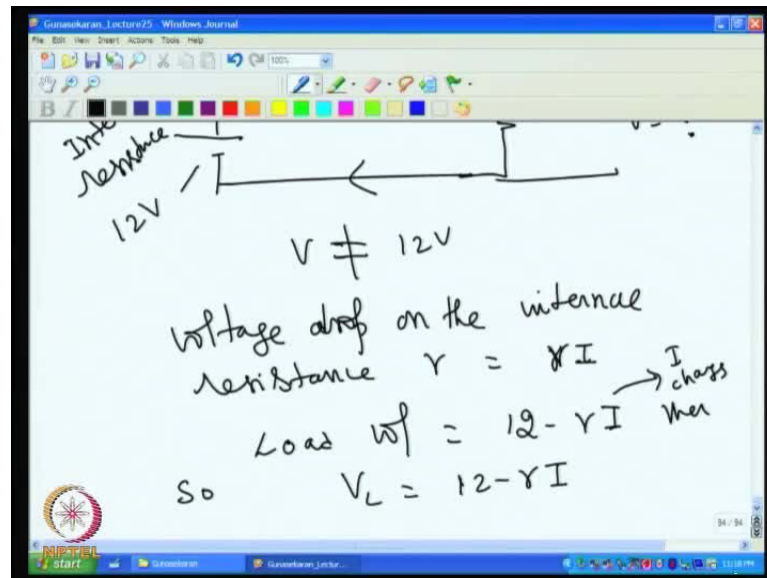 Gunasekaran_Lecture25 - Windows Journal
File Edit View Insert Actions Tools Help
100%
B I
Inte
resistance
12V
V = ?
V ≠ 12V
Voltage drop on the internal
resistance r = rI
Load vol = 12 - rI
I
changes
then
So V_L = 12 - rI
94 / 94
NPTEL
start Gunasekaran Gunasekaran_Lectur... 11:18 PM